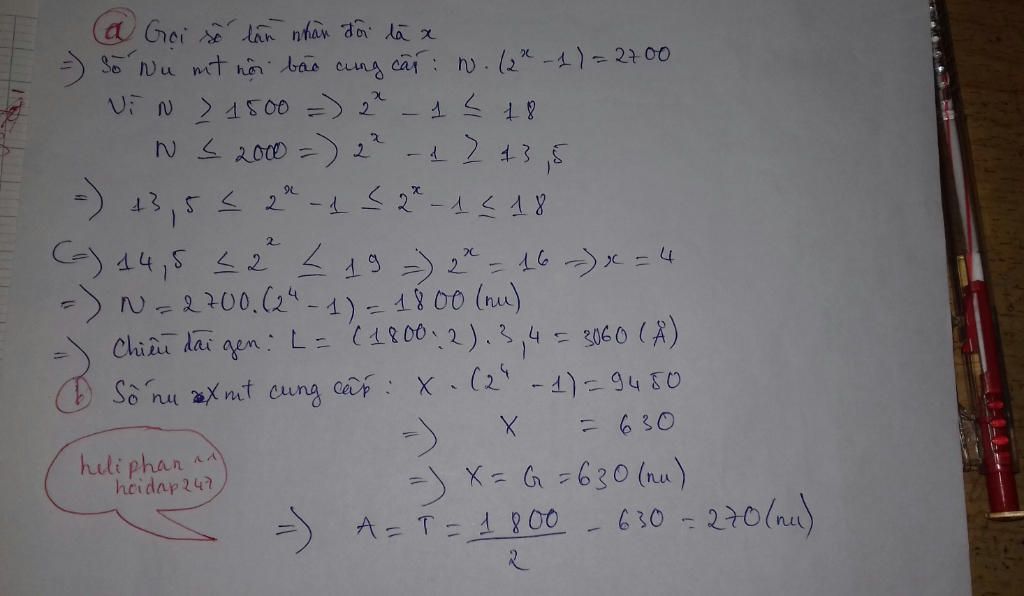 a Gọi số lần nhân đôi là x
=> Số Nu mt nội bào cung cấp: N.(2^x - 1) = 2700
Vì N ≥ 1500 => 2^x - 1 ≤ 18
N ≤ 2000 => 2^x - 1 ≥ 13,5
=> 13,5 ≤ 2^x - 1 ≤ 2^x - 1 ≤ 18
(=) 14,5 ≤ 2^x ≤ 19 => 2^x = 16 => x = 4
=> N = 2700.(2^4 - 1) = 1800 (nu)
=> Chiều dài gen: L = (1800:2).3,4 = 3060 (Å)
b Số nu X mt cung cấp: X.(2^4 - 1) = 9450
=> X = 630
=> X = G = 630 (nu)
=> A = T = 1800/2 - 630 = 270 (nu)
heliphan ^^
hoidap247